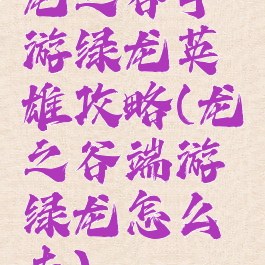 龙之谷手
游绿龙英
雄攻略(龙
之谷端游
绿龙怎么